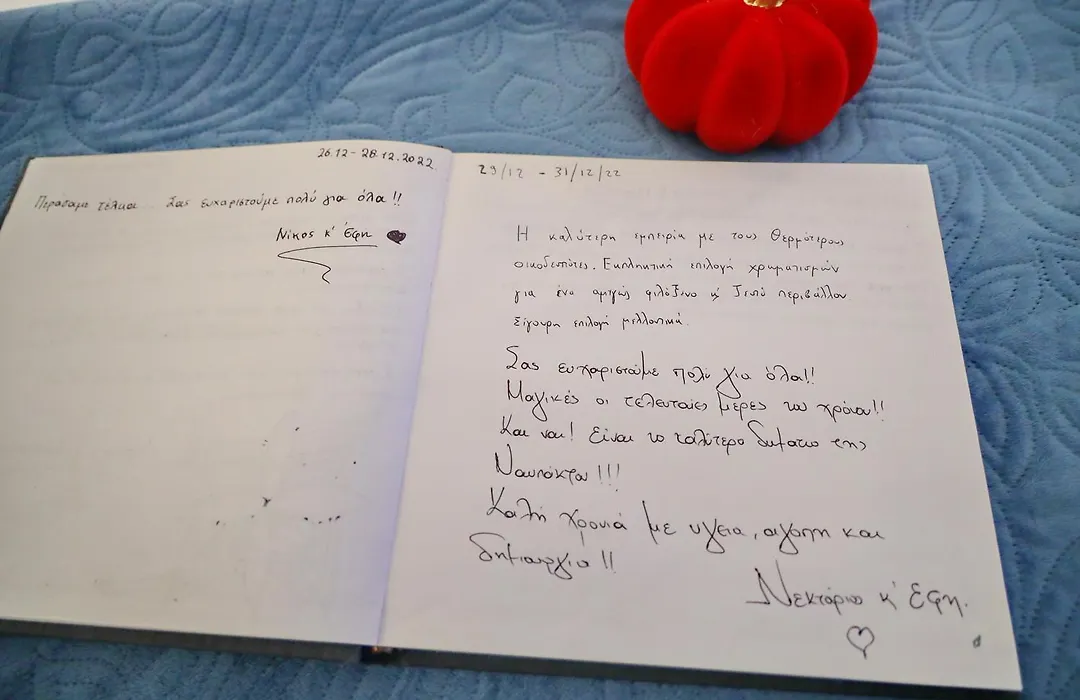 26.12 - 28.12.2022
Περάσαμε τέλεια... Σας ευχαριστούμε πολύ για όλα !!
Νίκος κ' Έφη
29/12 - 31/12/22
Η καλύτερη εμπειρία με τους θερμότερους
οικοδεσπότες. Εκπληκτική επιλογή χρωματισμών
για ένα αμιγώς φιλόξενο κ' ζεστό περιβάλλον
Σίγουρη επιλογή μελλοντικά.
Σας ευχαριστούμε πολύ για όλα!!
Μαγικές οι τελευταίες μέρες του χρόνου!!
Και ναι! Είναι το καλύτερο δωμάτιο της
Ναυπάκτου!!!
Καλή χρονιά με υγεία, αγάπη και
δημιουργία!!
Νεκτάριος κ' Έφη.